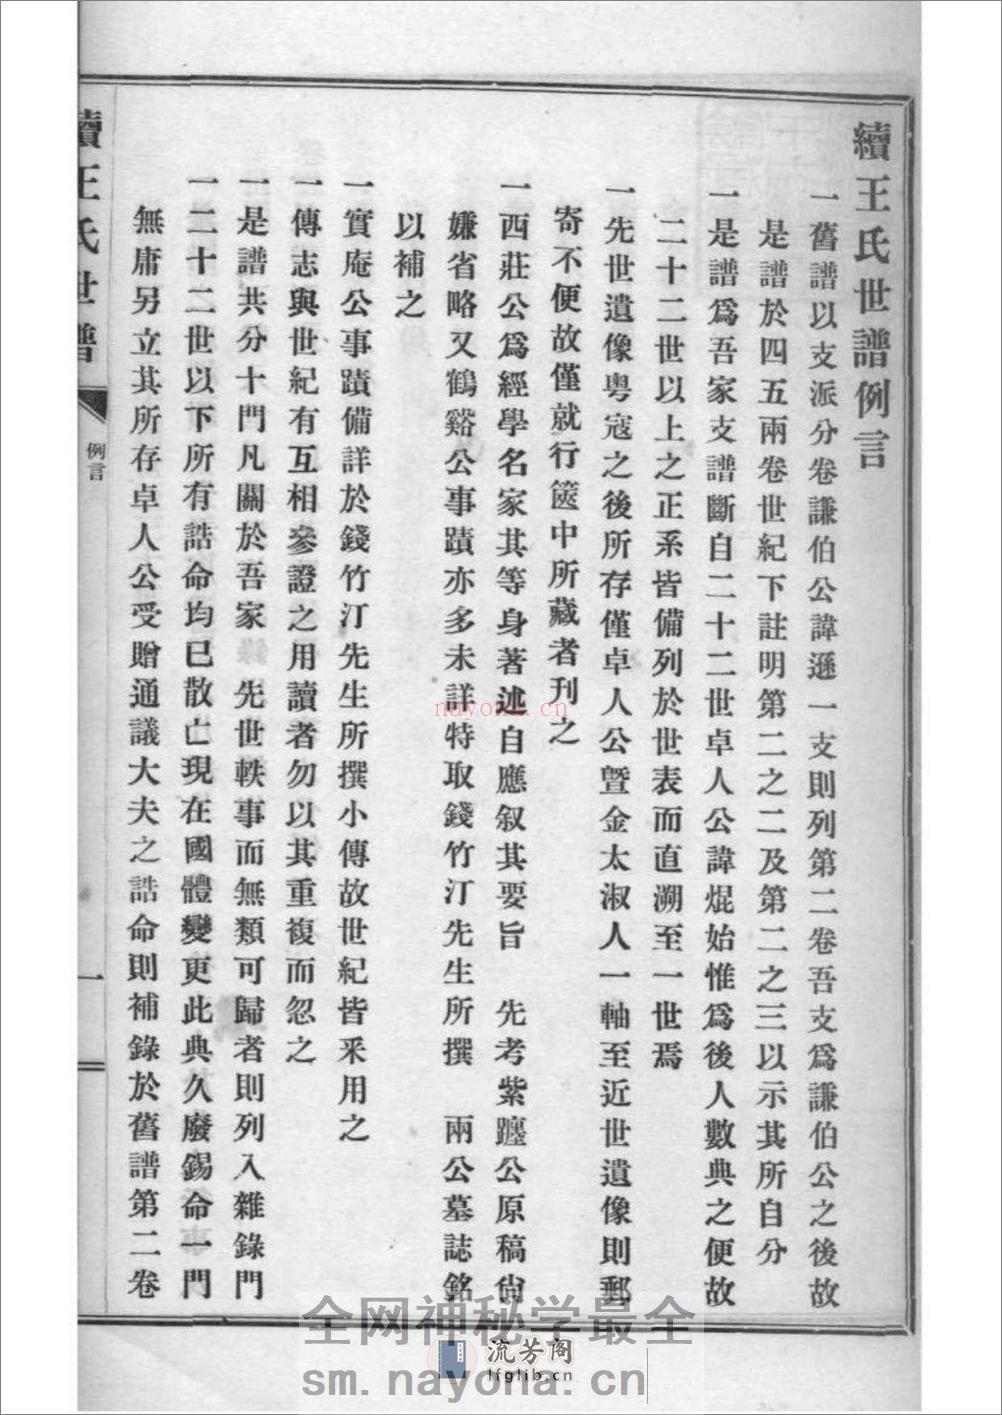 續王氏世譜例言
一舊譜以支派分卷謙伯公諱遜一支則列第二卷吾支爲謙伯公之後故
是譜於四五兩卷世紀下註明第二之二及第二之三以示其所自分
一是譜爲吾家支譜斷自二十二世卓人公諱焜始惟爲後人數典之便故
二十二世以上之正系皆備列於世表而直溯至一世焉
一先世遺像粤寇之後所存僅卓人公曁金太淑人一軸至近世遺像則郵
寄不便故僅就行篋中所藏者刊之
一西莊公爲經學名家其等身著述自應叙其要旨　先考紫躔公原稿尙
嫌省略又鶴谿公事蹟亦多未詳特取錢竹汀先生所撰　兩公墓誌銘
以補之
一實庵公事蹟備詳於錢竹汀先生所撰小傳故世紀皆采用之
一傳志與世紀有互相參證之用讀者勿以其重複而忽之
一是譜共分十門凡關於吾家　先世軼事而無類可歸者則列入雜錄門
一二十二世以下所有誥命均已散亡現在國體變更此典久廢錫命一門
無庸另立其所存卓人公受贈通議大夫之誥命則補錄於舊譜第二卷
續王氏世譜
例言
一
nayona.cn
全网神秘学最全
流芳阁
lfglib.cn
sm.nayona.cn